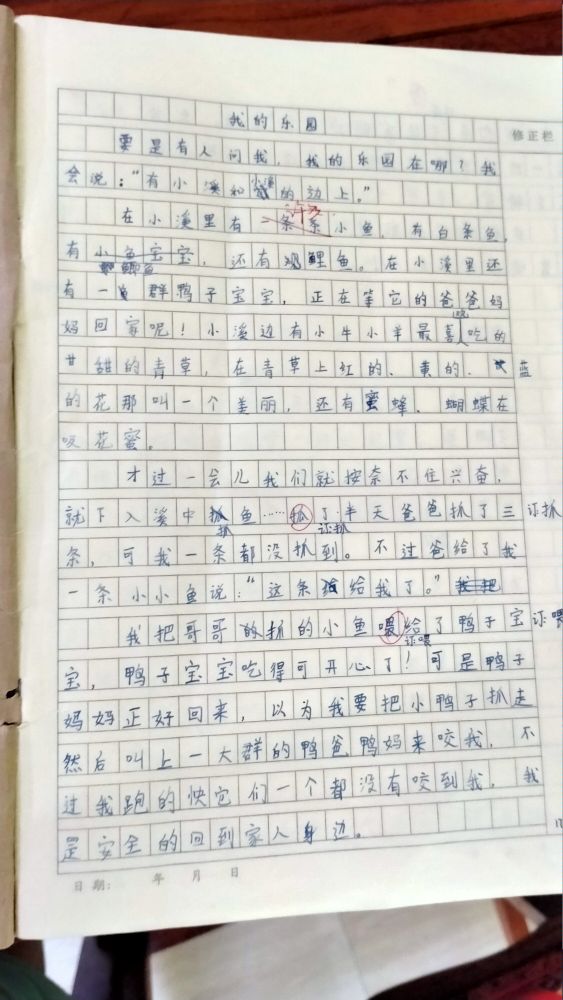 我的乐园
修正栏
要是有人问我，我的乐园在哪？我
会说：“有小溪和小溪的边上。”
许多
在小溪里有一条条小鱼，有白条鱼，
有小鱼宝宝，还有鲤鱼。在小溪里还
有一群鸭子宝宝，正在等它的爸爸妈
妈回家呢！小溪边有小牛小羊最喜吃的
甘甜的青草，在青草上红的、黄的、蓝
的花那叫一个美丽，还有蜜蜂、蝴蝶在
吸花蜜。
才过一会儿我们就按奈不住兴奋，
就下入溪中抓鱼……抓了半天爸爸抓了三 订抓
抓 订抓
条，可我一条都没抓到。不过爸给了我
一条小小鱼说：“这条给我了。”我把
我把哥哥抓的小鱼喂给了鸭子宝 订喂
订喂
宝，鸭子宝宝吃得可开心了！可是鸭子
妈妈正好回来，以为我要把小鸭子抓走
然后叫上一大群的鸭爸鸭妈来咬我，不
过我跑的快它们一个都没有咬到我，我
是安全的回到家人身边。
日期： 年 月 日